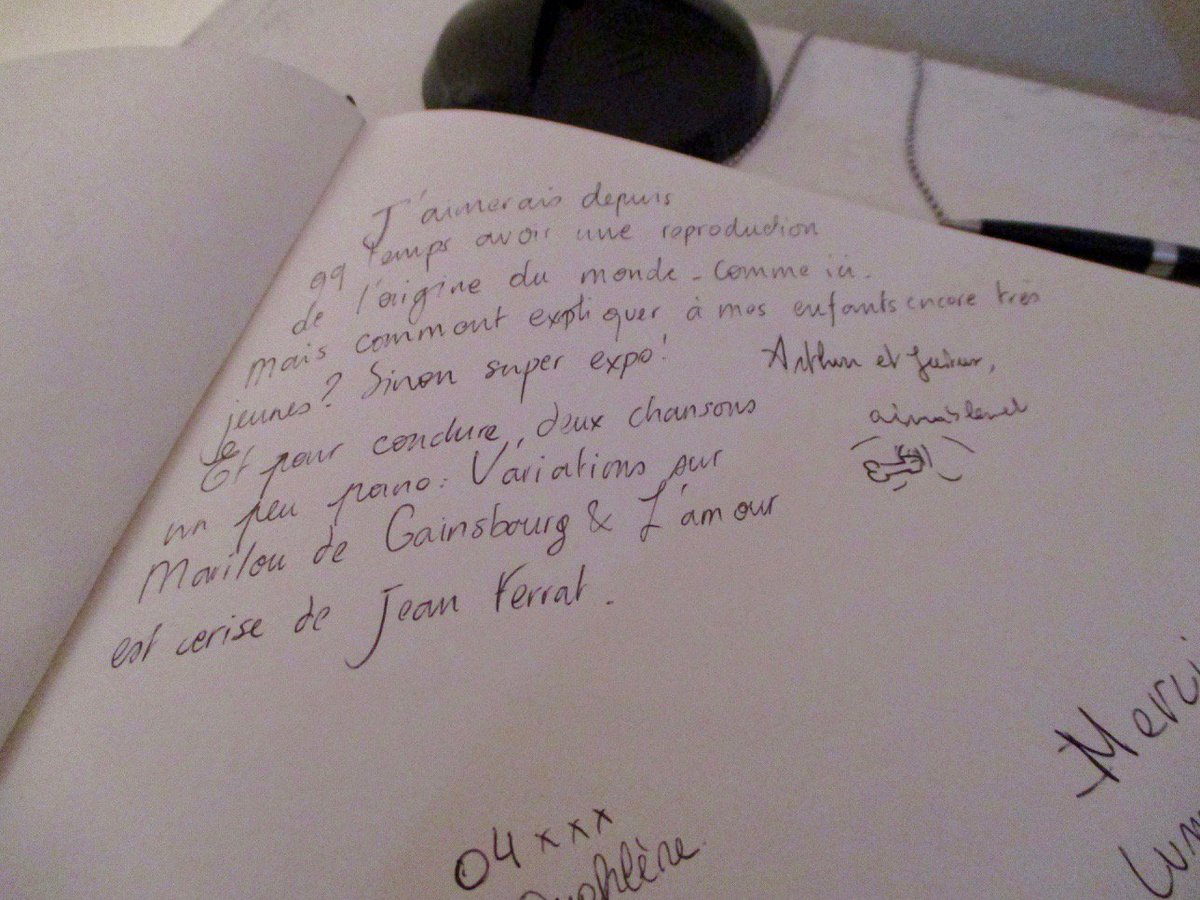 J'aimerais depuis
qq temps avoir une reproduction
de l'origine du monde - comme ici.
mais comment expliquer à mes enfants encore très
jeunes? Sinon super expo!
Et pour conclure, deux chansons
un peu piano: Variations sur
Marilou de Gainsbourg & L'amour
est cerise de Jean Ferrat.
Arthur et
04 xxx
Merci